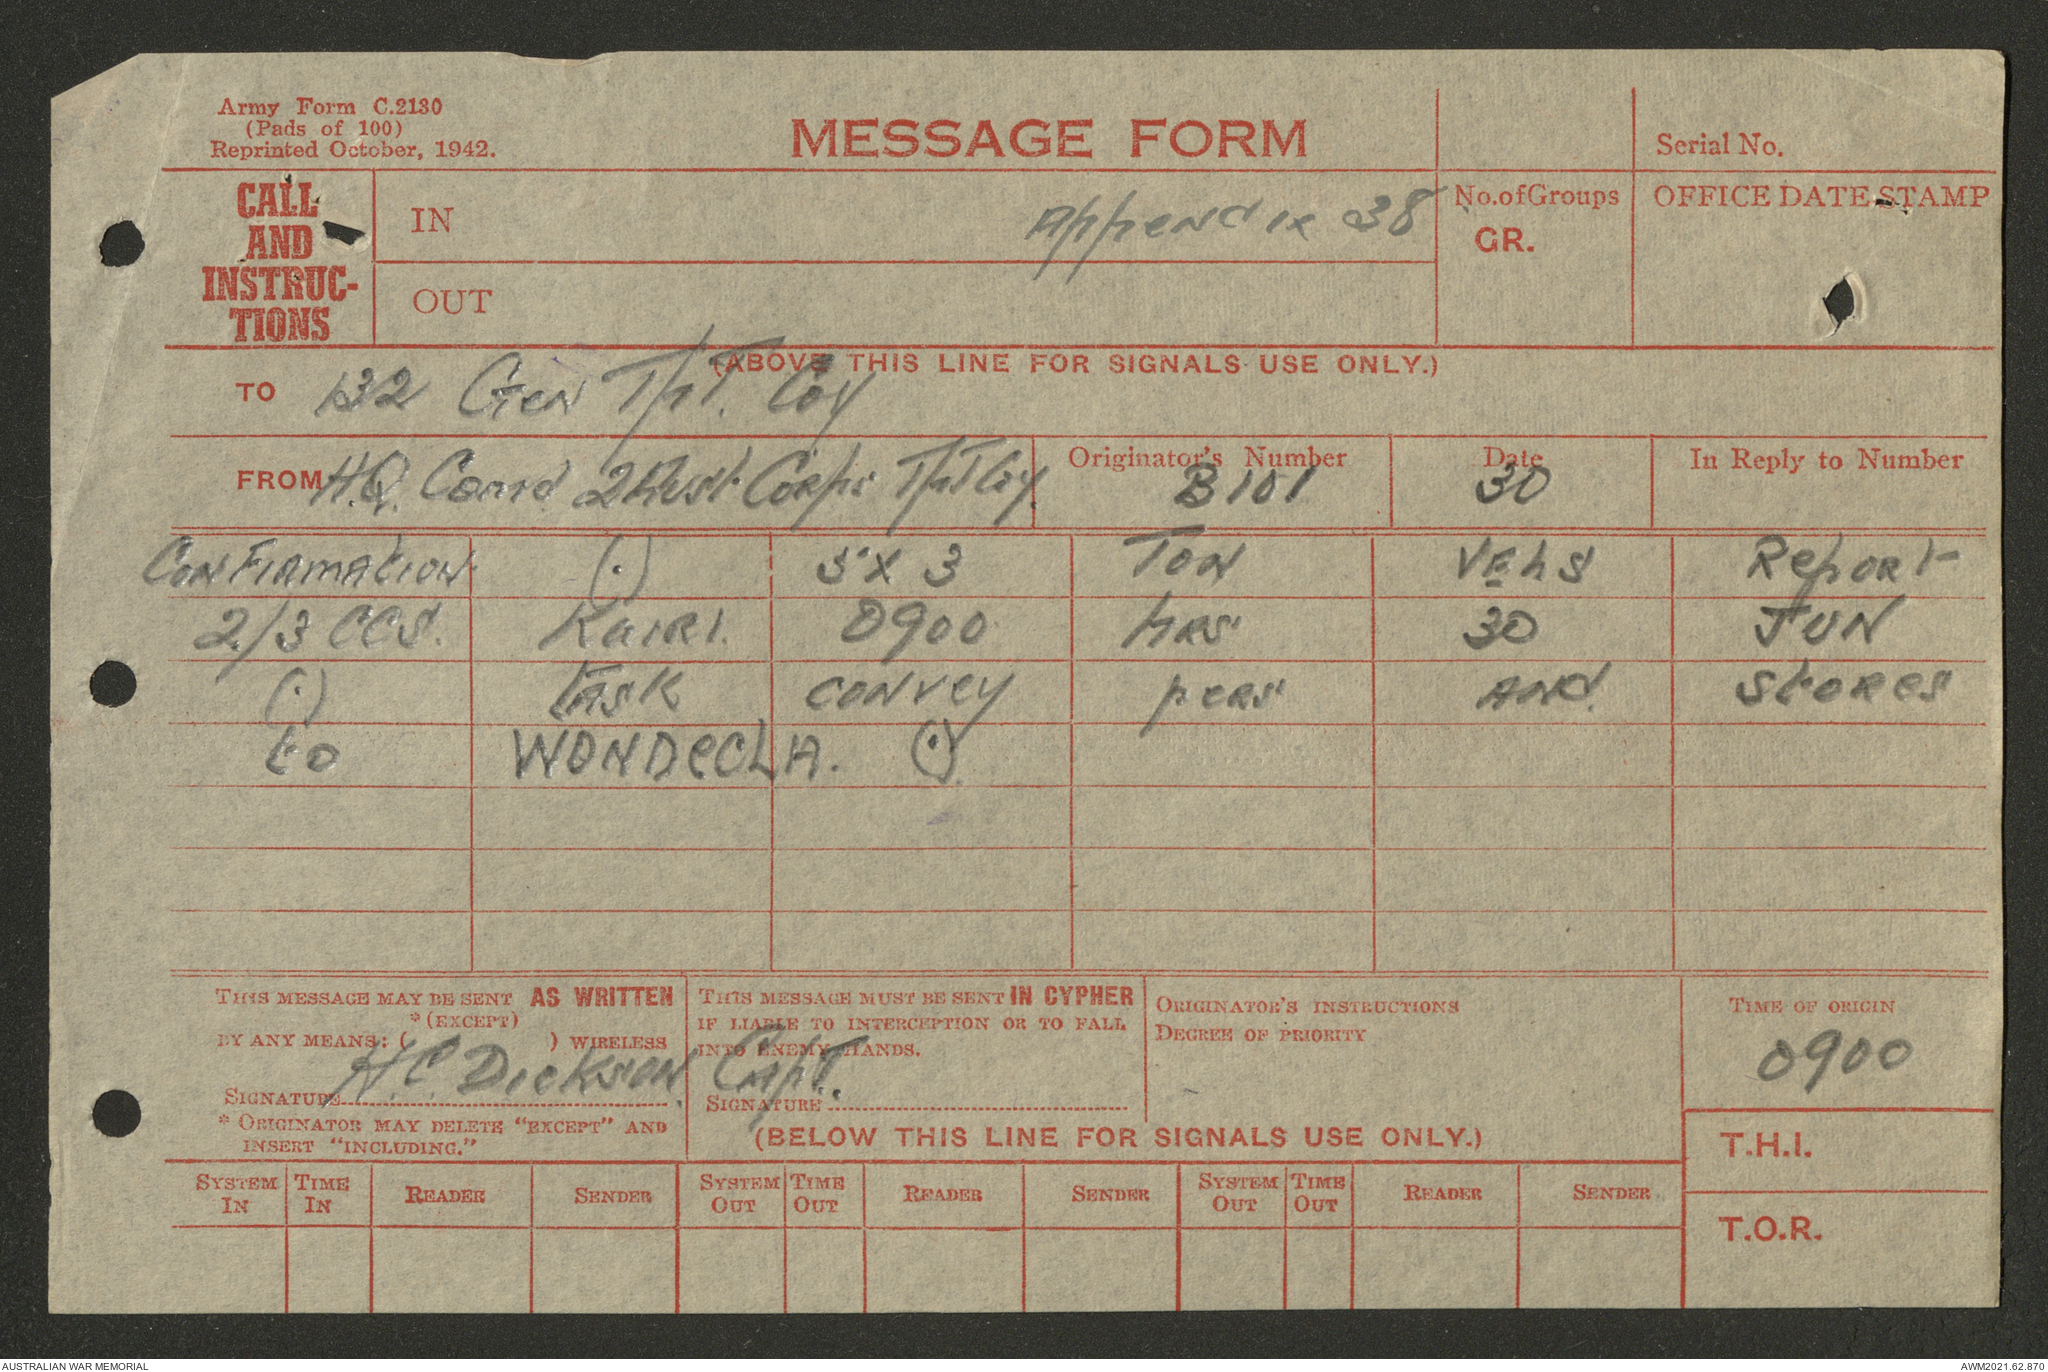 Army Form C.2130
(Pads of 100)
Reprinted October, 1942.
MESSAGE FORM
Serial No.
CALL
AND
INSTRUC-
TIONS
IN
Appendix 38
No. of Groups
GR.
OFFICE DATE STAMP
OUT
(ABOVE THIS LINE FOR SIGNALS USE ONLY.)
TO 132 Gen Tpt. Coy
FROM H.Q. Comd 2 Aust Corps Tpt Coy.
Originator's Number
B101
Date
30
In Reply to Number
Confirmation (.) 5 x 3 Ton Vehs Report
2/3 CCS. Kairi. 0900 hrs 30 JUN
(.) Task convey pers and. stores
to WONDECLA. (.)
THIS MESSAGE MAY BE SENT AS WRITTEN
* (EXCEPT)
BY ANY MEANS: ( ) WIRELESS
H.C. Dickson. Capt.
SIGNATURE
* ORIGINATOR MAY DELETE "EXCEPT" AND
INSERT "INCLUDING."
THIS MESSAGE MUST BE SENT IN CYPHER
IF LIABLE TO INTERCEPTION OR TO FALL
INTO ENEMY HANDS.
SIGNATURE
ORIGINATOR'S INSTRUCTIONS
DEGREE OF PRIORITY
TIME OF ORIGIN
0900
(BELOW THIS LINE FOR SIGNALS USE ONLY.)
T.H.I.
T.O.R.
SYSTEM IN TIME IN READER SENDER SYSTEM OUT TIME OUT READER SENDER SYSTEM OUT TIME OUT READER SENDER
AUSTRALIAN WAR MEMORIAL
AWM2021.62.870